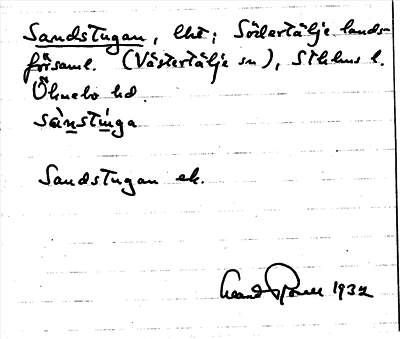 Sandstugan, lht; Södertälje lands-
församl. (Västertälje sn), Sthlms l.
Öknebo hd.
sànstìnga
Sandstugan ek.
1932